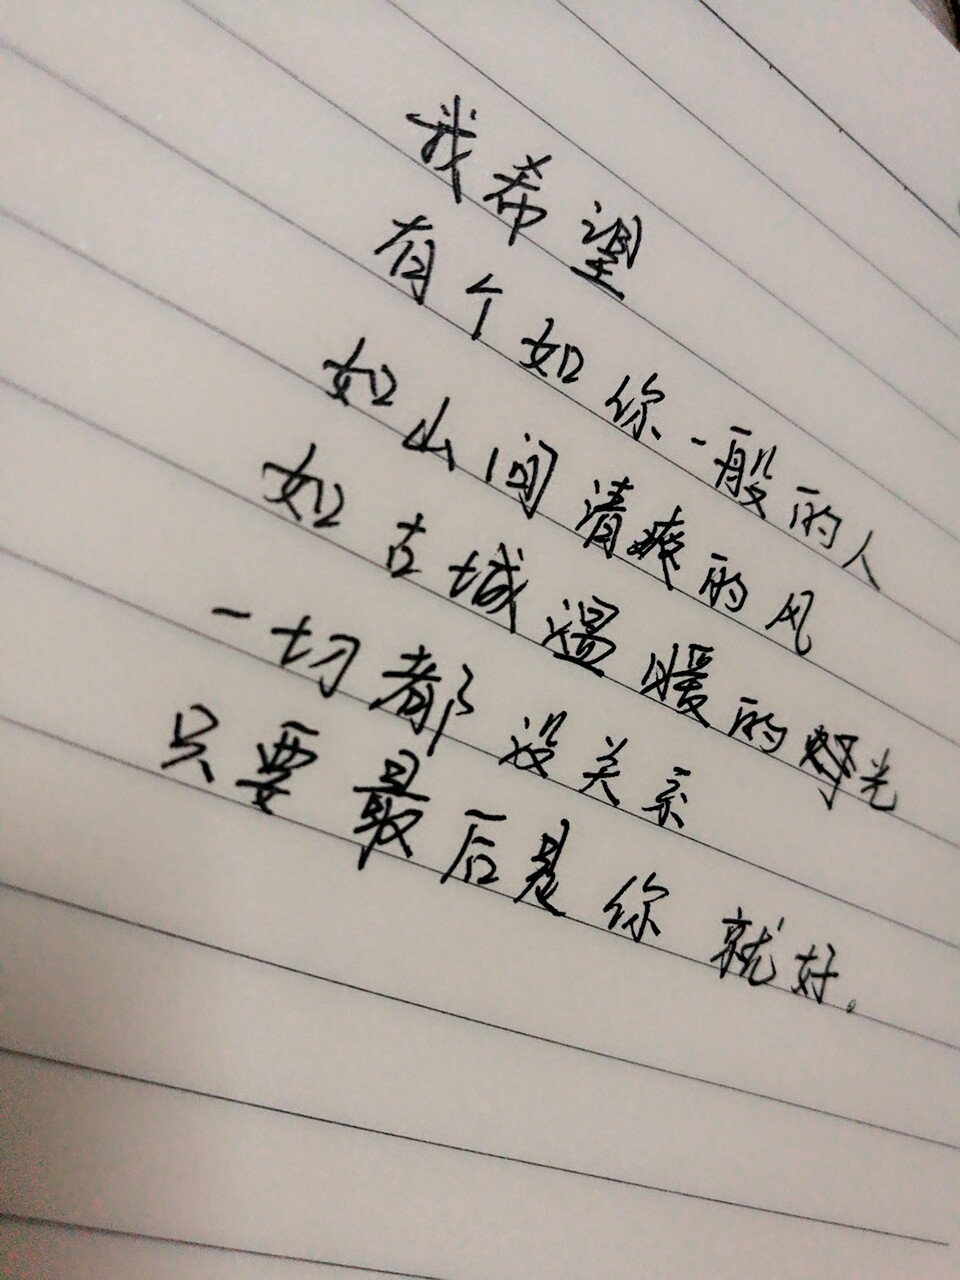 我希望
有个如你一般的人
如山间清爽的风
如古城温暖的光
一切都没关系
只要最后是你 就好。